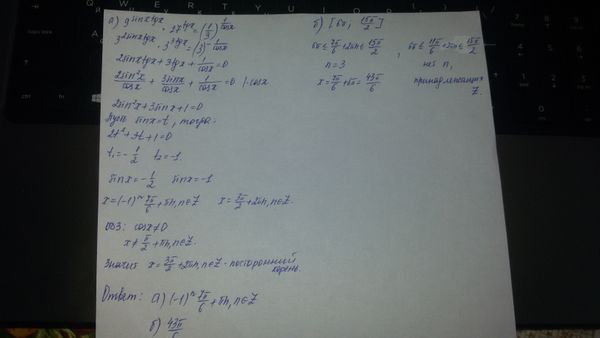 а) 9^(sinx tgx) · 27^(tgx) = (1/3)^(1/cosx)
3^(2sinx tgx) · 3^(3tgx) = (3)^(-1/cosx)
2sinxtgx + 3tgx + 1/cosx = 0
2sin²x/cosx + 3sinx/cosx + 1/cosx = 0 | · cosx
2sin²x + 3sinx + 1 = 0
Пусть sinx = t, тогда:
2t² + 3t + 1 = 0
t₁ = -1/2 t₂ = -1.
sinx = -1/2 sinx = -1
x = (-1)ⁿ 7π/6 + πn, n∈Z x = 3π/2 + 2πn, n∈Z
ОДЗ: cosx ≠ 0
x ≠ π/2 + πn, n∈Z.
Значит x = 3π/2 + 2πn, n∈Z - посторонний корень.
Ответ: а) (-1)ⁿ 7π/6 + πn, n∈Z
б) 43π/6
б) [6π; 15π/2]
6π ≤ 7π/6 + 2πn ≤ 15π/2 , 6π ≤ 11π/6 + 2πn ≤ 15π/2
n = 3 нет n,
x = 7π/6 + 6π = 43π/6 принадлежащих
Z.